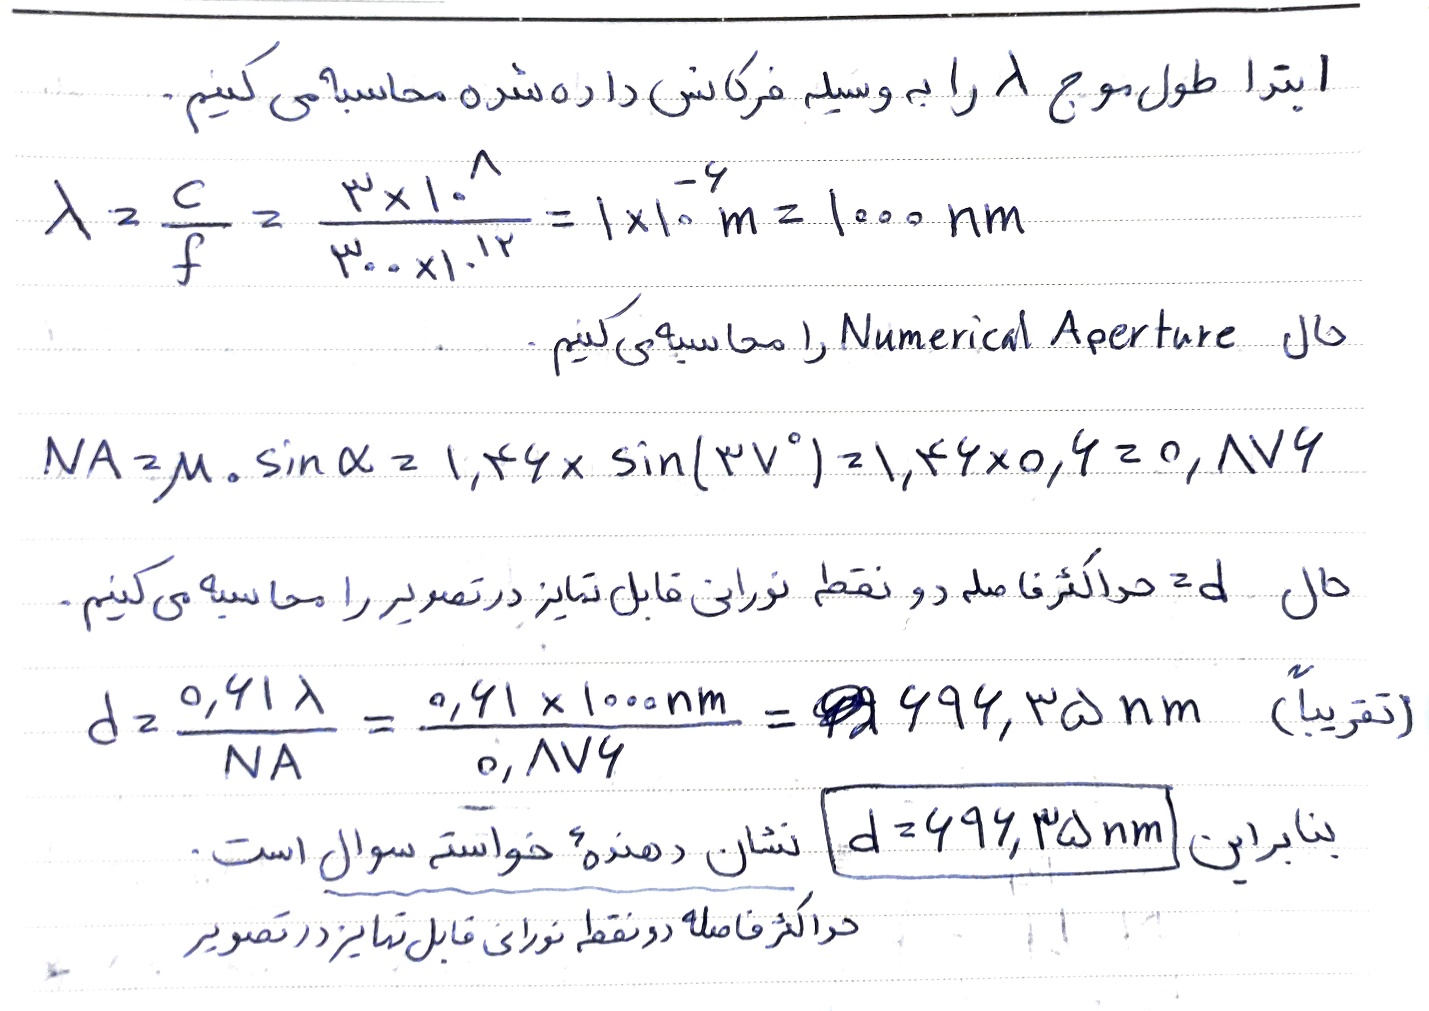 ابتدا طول موج λ را به وسیله فرکانس داده شده محاسبه می کنیم.
λ = c/f = ۳×۱۰^۸ / ۳۰۰×۱۰^۱۲ = ۱×۱۰^-۶ m = ۱۰۰۰ nm
حال Numerical Aperture را محاسبه می کنیم.
NA = μ. sin α = ۱,۴۶ × sin(۳۷°) = ۱,۴۶×۰,۶ = ۰,۸۷۶
حال d= حداکثر فاصله دو نقطه نورانی قابل تمایز در تصویر را محاسبه می کنیم.
d = ۰,۶۱ λ / NA = ۰,۶۱ × ۱۰۰۰ nm / ۰,۸۷۶ = ۶۹۶,۳۵ nm (تقریباً)
بنابراین d = ۶۹۶,۳۵ nm نشان دهندهٔ خواسته سوال است.
حداکثر فاصله دو نقطه نورانی قابل تمایز در تصویر